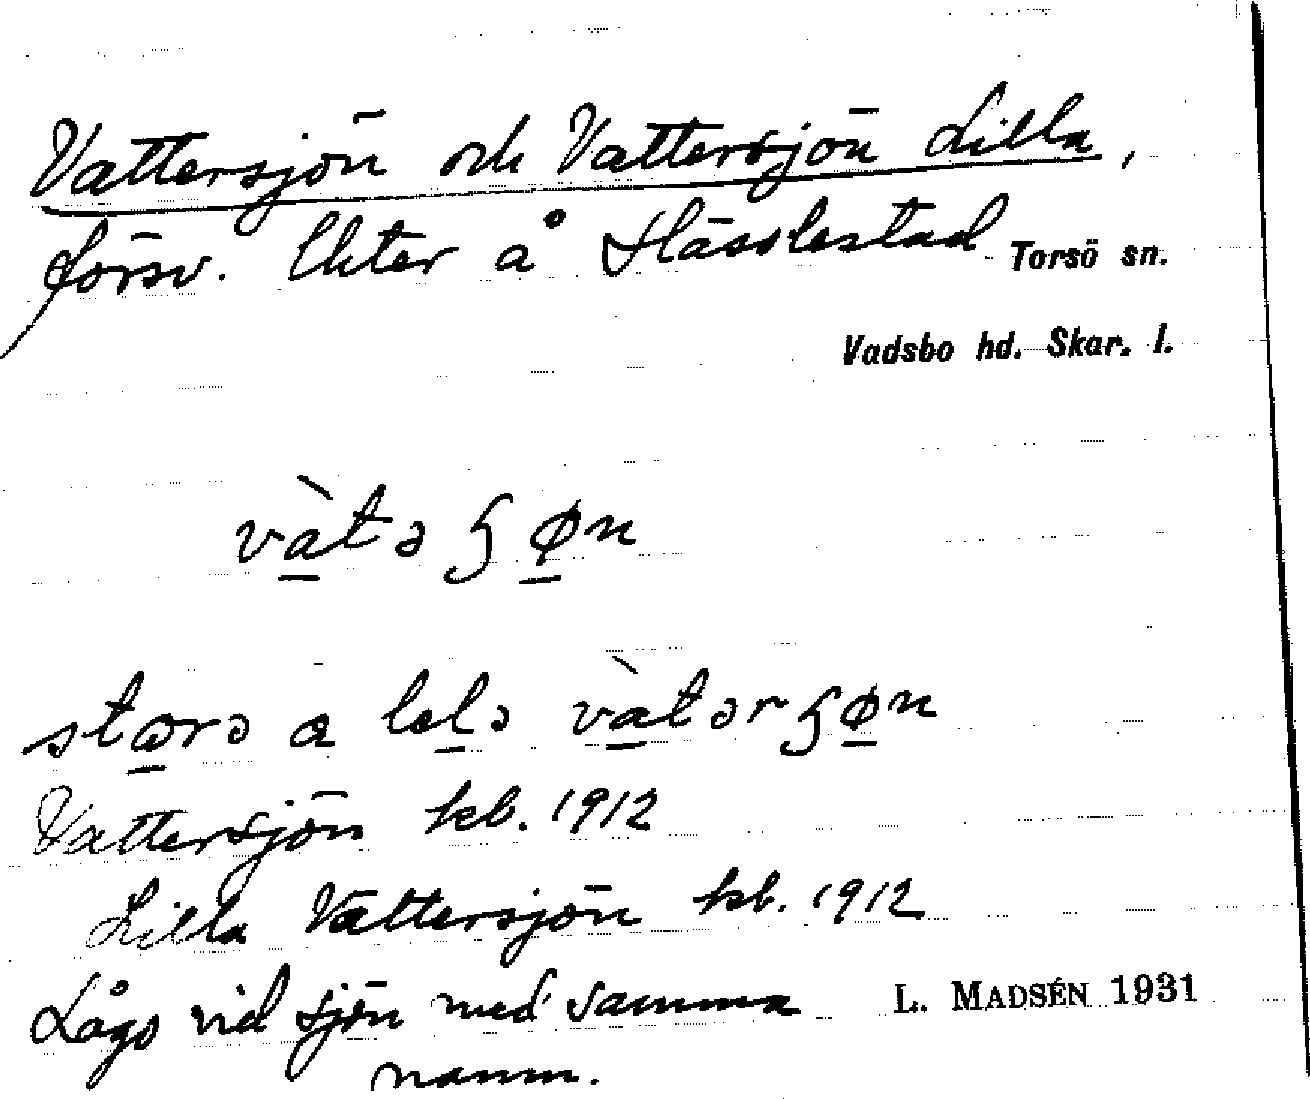 Vattersjön och Vattersjön Lilla,
försv. lhter å Hässlestad Torsö sn.
Vadsbo hd. Skar. l.
và̱təʃø̱n
sto̱rə a leḻə và̱tərʃø̱n
Vattersjön kb. 1912
Lilla Vattersjön kb. 1912
Lågo vid sjön med samma L. MADSÉN 1931
namn.